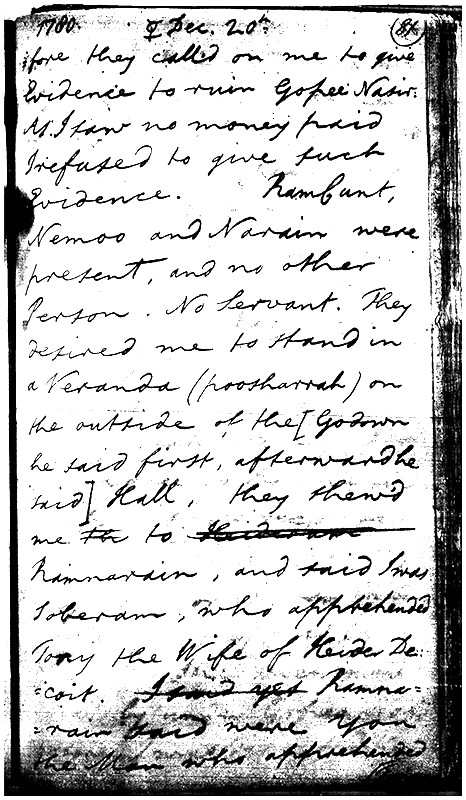 1780. ☿ Dec. 20th. 81
:fore they called on me to give
Evidence to ruin Gopee Nasir.
As I saw no money paid
I refused to give such
Evidence. RamCunt,
Nemoo and Narain were
present, and no other
Person. No Servant. They
desired me to stand in
a Veranda (poosharrah) on
the outside of the [Godown
he said first, afterward he
said] Hall, they shew'd
me the to
Ramnarain, and said I was
Soberam, who apprehended
Tony the Wife of Heider De:
:coit. I said yes Ramna=
=rain said were you
the Man who apprehended